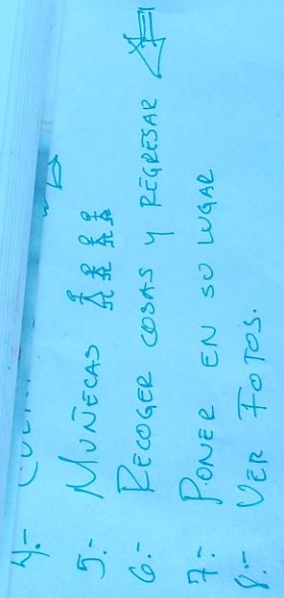 4.-
5.- MUÑECAS
6.- RECOGER COSAS Y REGRESAR
7.- PONER EN SU LUGAR
8.- VER FOTOS.